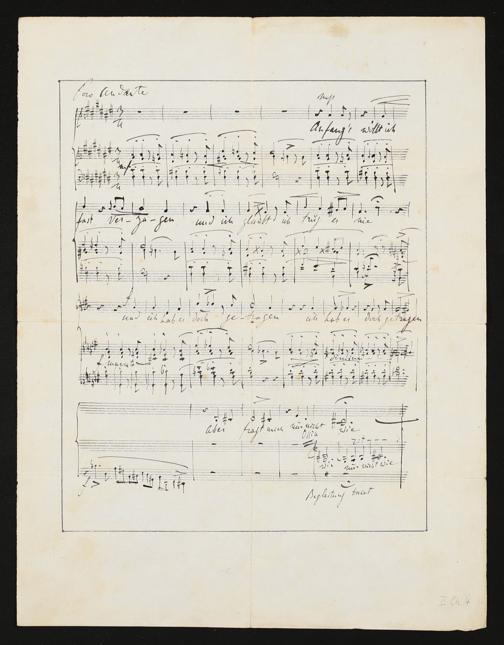 Poco Andante
Anfangs wollt ich
fast ver-za-gen und ich glaubt ich trüg es nie
und ich hab es doch ge-tragen ich hab es doch getragen
aber fragt mich nur nicht wie
Ossia
nur nicht wie
Begleitung tacet